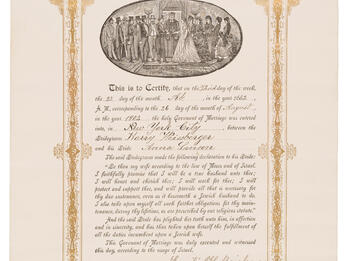 This is to Certify, that on the Third day of the week,
the 23 day of the month Ab, in the year 5662,
A. M., corresponding to the 26 day of the month of August,
in the year 1902, the holy Covenant of Marriage was entered
into, in New York City, between the
Bridegroom Harry
and his Bride Anna
The said Bridegroom made the following declaration to his Bride:
"Be thou my wife according to the law of Moses and of Israel.
I faithfully promise that I will be a true husband unto thee;
I will honor and cherish thee; I will work for thee; I will
protect and support thee, and will provide all that is necessary for
thy due sustenance, even as it beseemeth a Jewish husband to do.
I also take upon myself all such further obligations for thy main-
tenance, during thy lifetime, as are prescribed by our religious statute."
And the said Bride has plighted her troth unto him, in affection
and in sincerity, and has thus taken upon herself the fulfillment of
all the duties incumbent upon a Jewish wife.
This Covenant of Marriage was duly executed and witnessed
this day, according to the usage of Israel.